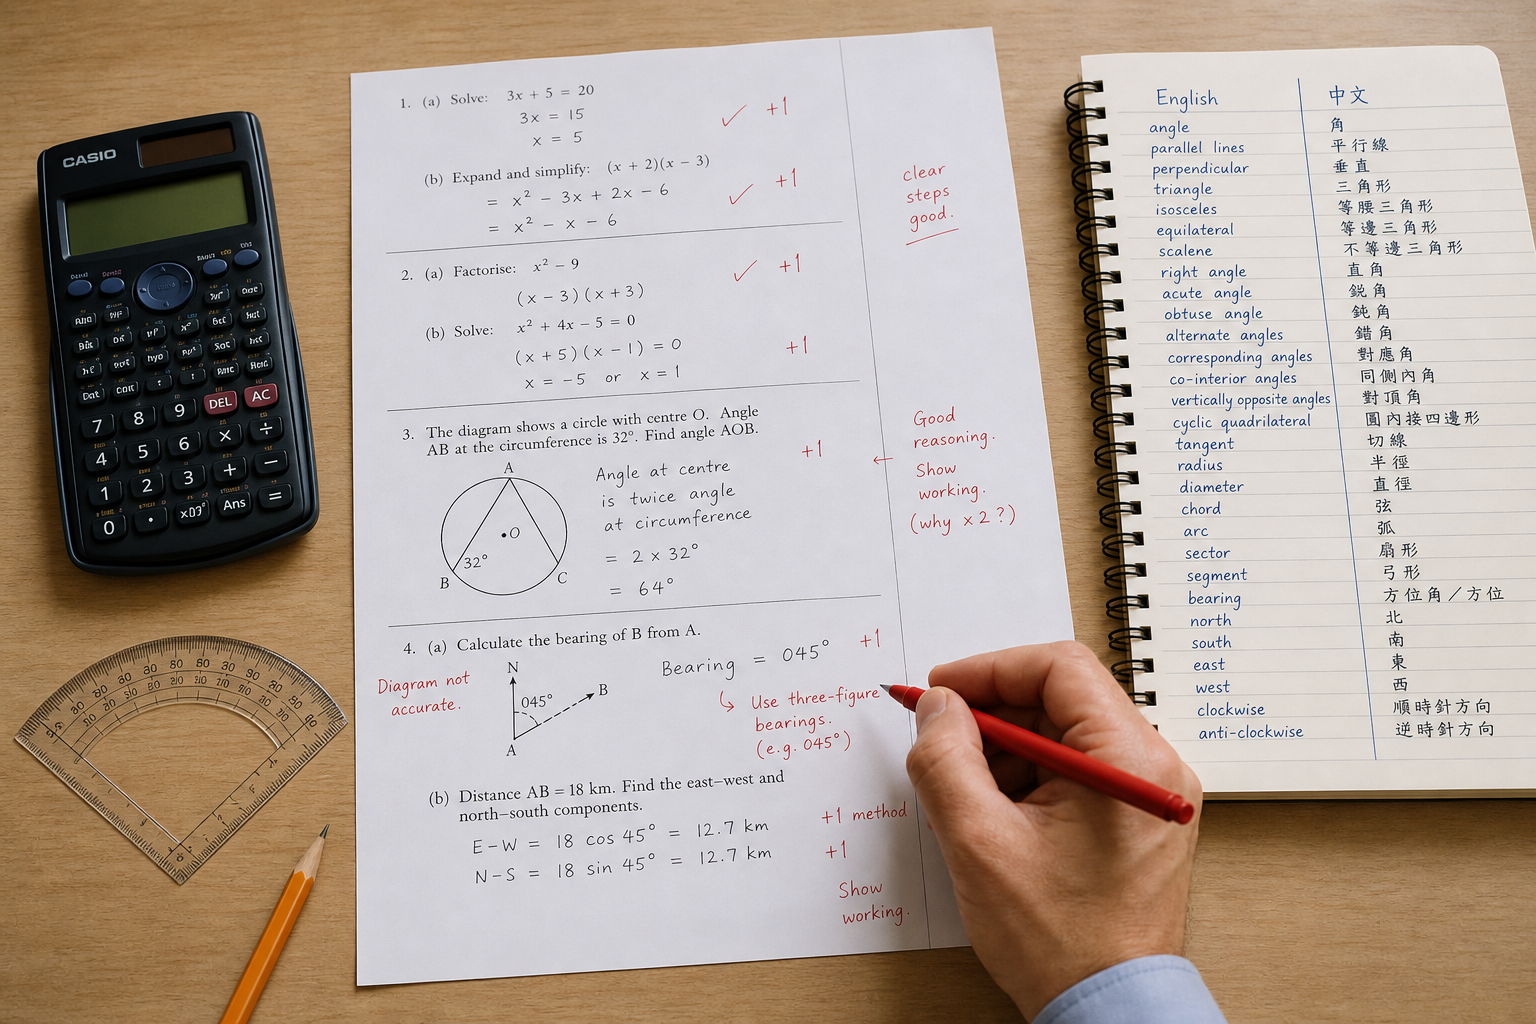 CASIO
DEL AC
7 8 9
4 5 6 × ÷
1 2 3 + −
0 . Ans =
1. (a) Solve: 3x + 5 = 20
3x = 15
x = 5
✓ +1
(b) Expand and simplify: (x + 2)(x − 3)
= x² − 3x + 2x − 6
= x² − x − 6
✓ +1
clear
steps
good.
2. (a) Factorise: x² − 9
(x − 3)(x + 3)
✓ +1
(b) Solve: x² + 4x − 5 = 0
(x + 5)(x − 1) = 0
x = −5 or x = 1
+1
3. The diagram shows a circle with centre O. Angle
AB at the circumference is 32°. Find angle AOB.
A
O
32°
B
C
Angle at centre
is twice angle
at circumference
= 2 × 32°
= 64°
+1
← Good
reasoning.
Show
working.
(why × 2 ?)
4. (a) Calculate the bearing of B from A.
Diagram not
accurate.
N
045°
B
A
Bearing = 045°
+1
Use three-figure
bearings.
(e.g. 045°)
(b) Distance AB = 18 km. Find the east–west and
north–south components.
E-W = 18 cos 45° = 12.7 km
N-S = 18 sin 45° = 12.7 km
+1 method
+1
Show
working.
English 中文
angle 角
parallel lines 平行線
perpendicular 垂直
triangle 三角形
isosceles 等腰三角形
equilateral 等邊三角形
scalene 不等邊三角形
right angle 直角
acute angle 鋭角
obtuse angle 鈍角
alternate angles 錯角
corresponding angles 對應角
co-interior angles 同側內角
vertically opposite angles 對頂角
cyclic quadrilateral 圓內接四邊形
tangent 切線
radius 半徑
diameter 直徑
chord 弦
arc 弧
sector 扇形
segment 弓形
bearing 方位角／方位
north 北
south 南
east 東
west 西
clockwise 順時針方向
anti-clockwise 逆時針方向